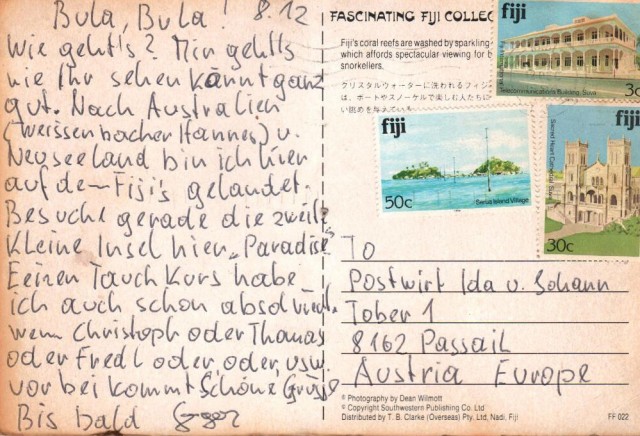 Bula, Bula! 8.12
Wie geht's? Mir geht's
wie Ihr sehen könnt ganz
gut. Nach Australien
(Weissenbacher Hannes) u.
Neuseeland bin ich hier
auf den Fiji's gelandet.
Besuche gerade die zweite
Kleine Insel hier „Paradise"
Eeinen Tauchkurs habe
ich auch schon absolviert.
wenn Christoph oder Thomas
oder Fredl oder, oder, usw.
vorbeikommt Schöne Grüsse
Bis bald
FASCINATING FIJI COLLEC
Fiji's coral reefs are washed by sparkling
which affords spectacular viewing for b
snorkellers.
クリスタルウォーターに洗われるフィジ
は、ボートやスノーケルで楽しむ人たちに
い眺めを与えて
fiji
Telecommunications Building, Suva
3c
fiji
50c
Serua Island Village
fiji
Sacred Heart Cat
30c
To
Postwirt Ida u. Johann
Tober 1
8162 Passail
Austria Europe
© Photography by Dean Wilmott
© Copyright Southwestern Publishing Co. Ltd
Distributed by T. B. Clarke (Overseas) Pty. Ltd, Nadi, Fiji
FF 022